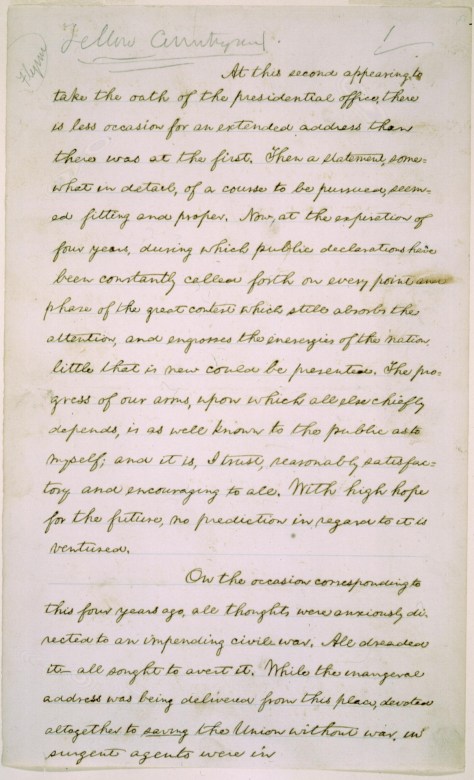 Fellow Countrymen.
1
At this second appearing, to
take the oath of the presidential office, there
is less occasion for an extended address than
there was at the first. Then a statement, some=
what in detail, of a course to be pursued, seem=
ed fitting and proper. Now, at the expiration of
four years, during which public declarations have
been constantly called forth on every point and
phase of the great contest which still absorbs the
attention, and engrosses the energies of the nation,
little that is new could be presented. The pro=
gress of our arms, upon which all else chiefly
depends, is as well known to the public as to
myself; and it is, I trust, reasonably satisfac=
tory and encouraging to all. With high hope
for the future, no prediction in regard to it is
ventured.
On the occasion corresponding to
this four years ago, all thoughts were anxiously di=
rected to an impending civil war. All dreaded
it — all sought to avert it. While the inaugeral
address was being delivered from this place, devoted
altogether to saving the Union without war, in
surgent agents were in